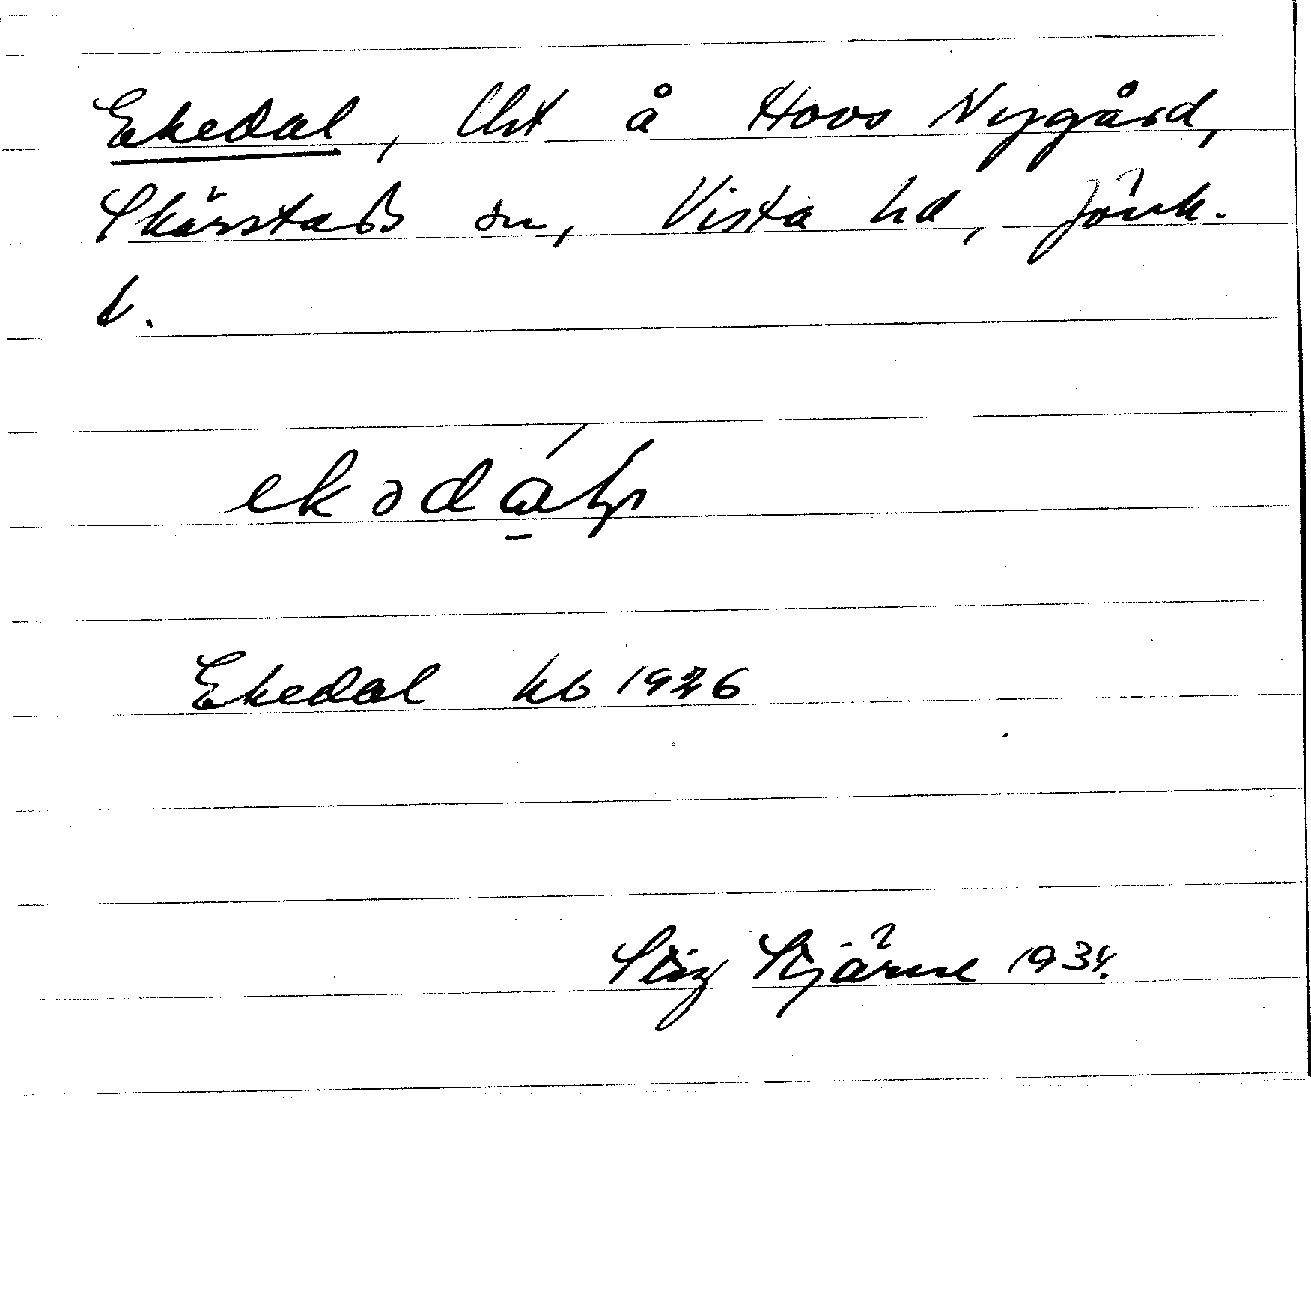 Ekedal, Lht å Hovs Nygård,
Skärstads sn, Vista hd, Jönk.
l.
ekədálp
Ekedal kb 1926
Stig Stjärne 1934.